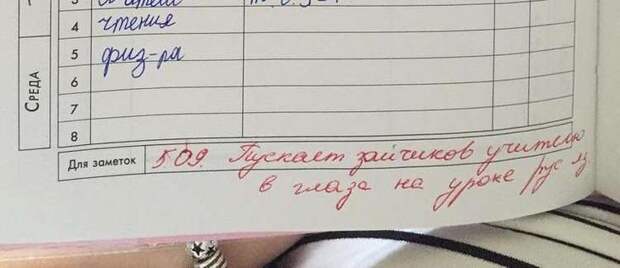 3
4 чтения
5 физ-ра
6
7
8
СРЕДА
Для заметок 509. Пускает зайчиков учителю
в глаза на уроке рус яз.